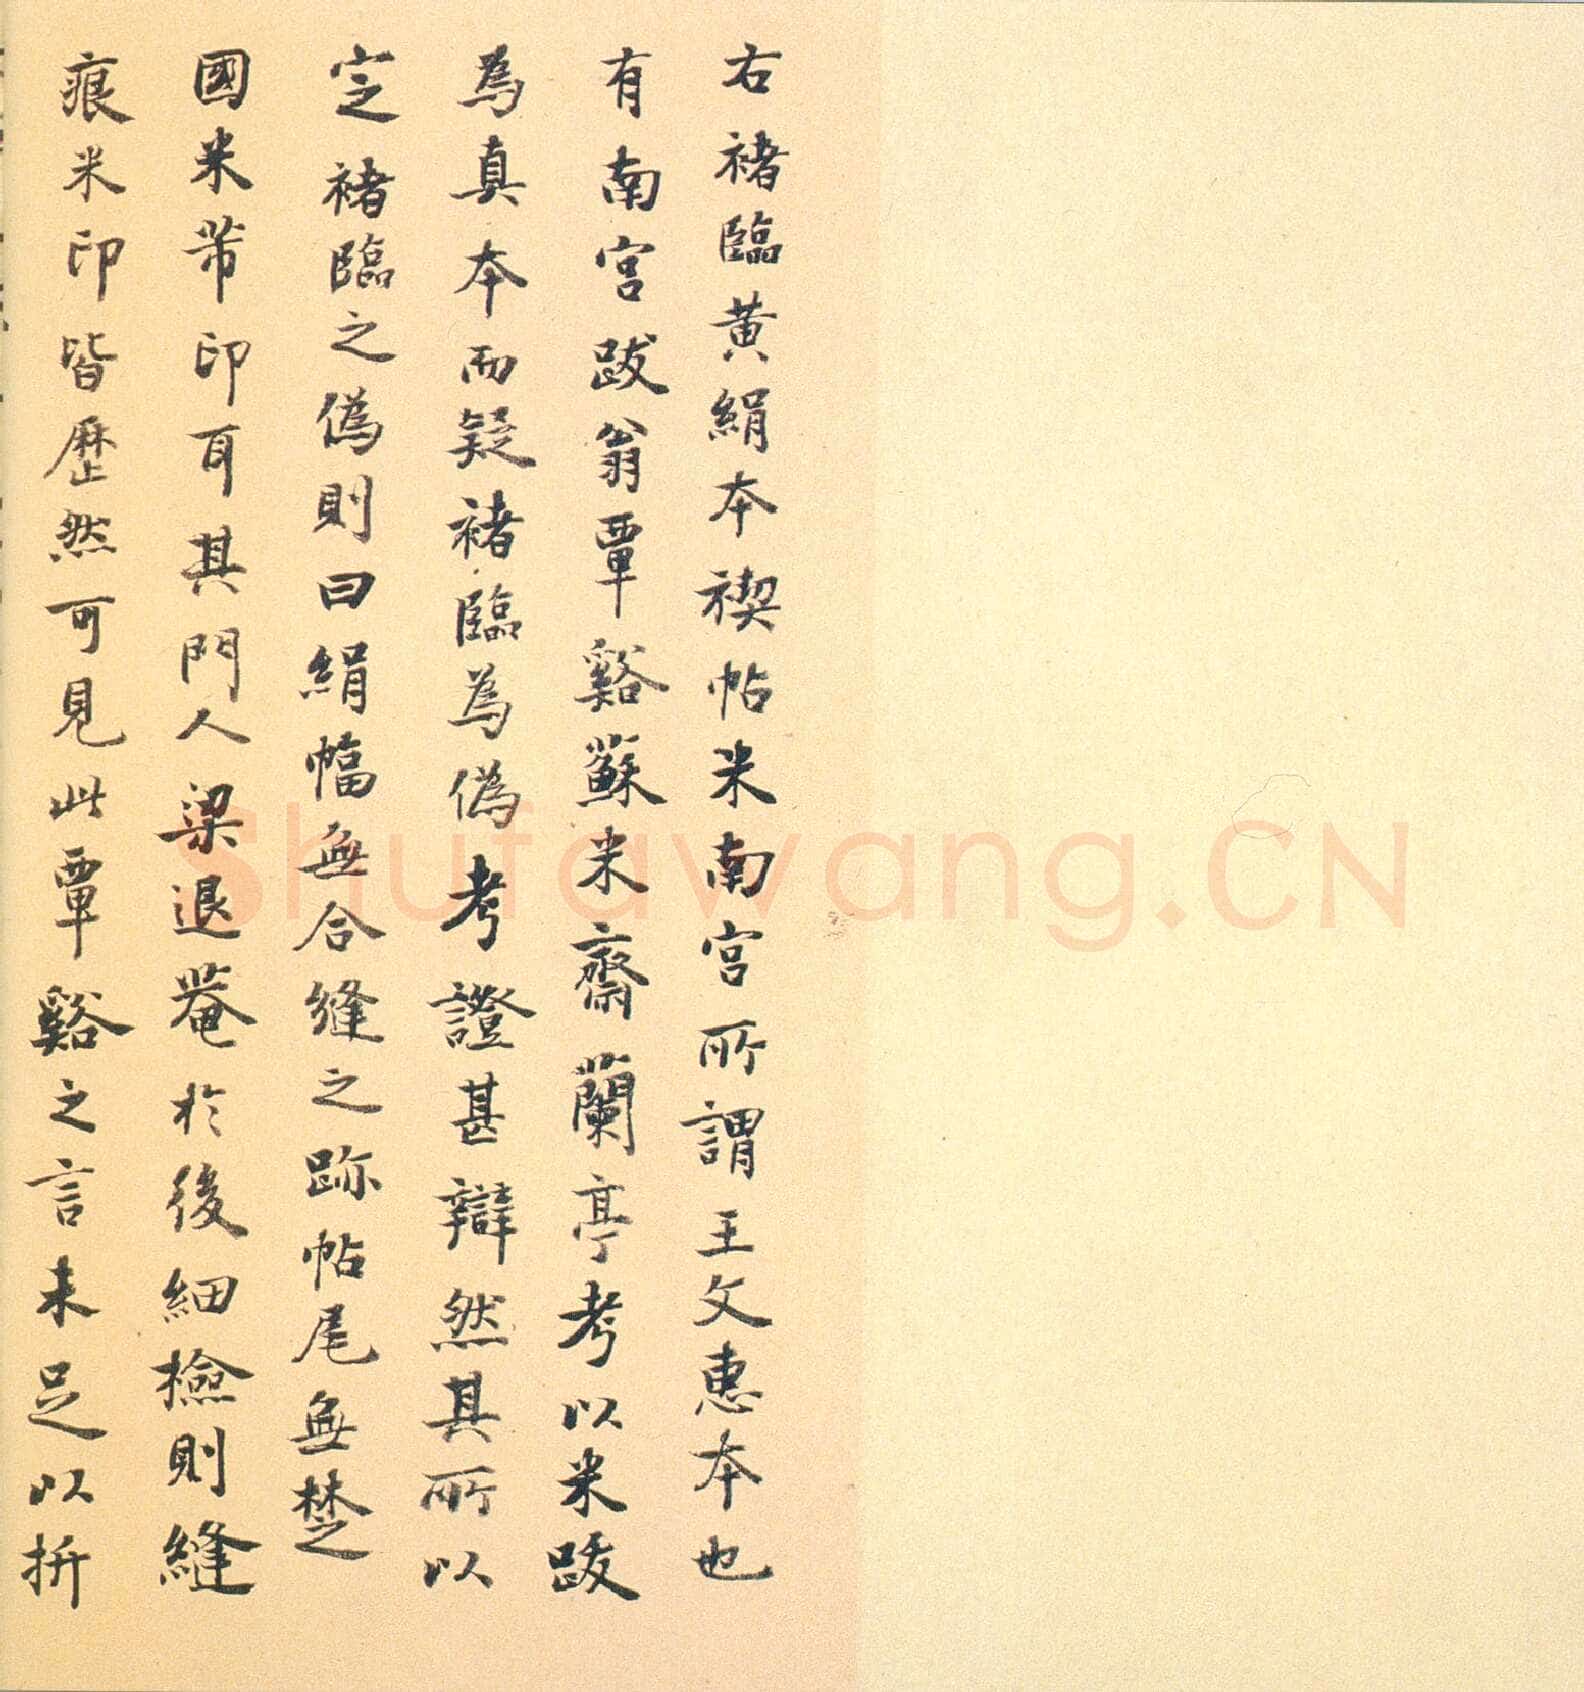 右褚臨黃絹本禊帖米南宮所謂王文惠本也
有南宮跋翁覃谿蘇米齋蘭亭考以米跋
為真本而疑褚臨為偽考證甚辯然其所以
定褚臨之偽則曰絹幅無合縫之跡帖尾無楚
國米芾印耳其門人梁退菴於後細檢則縫
痕米印皆歷然可見此覃谿之言未足以折
Shufawang.CN